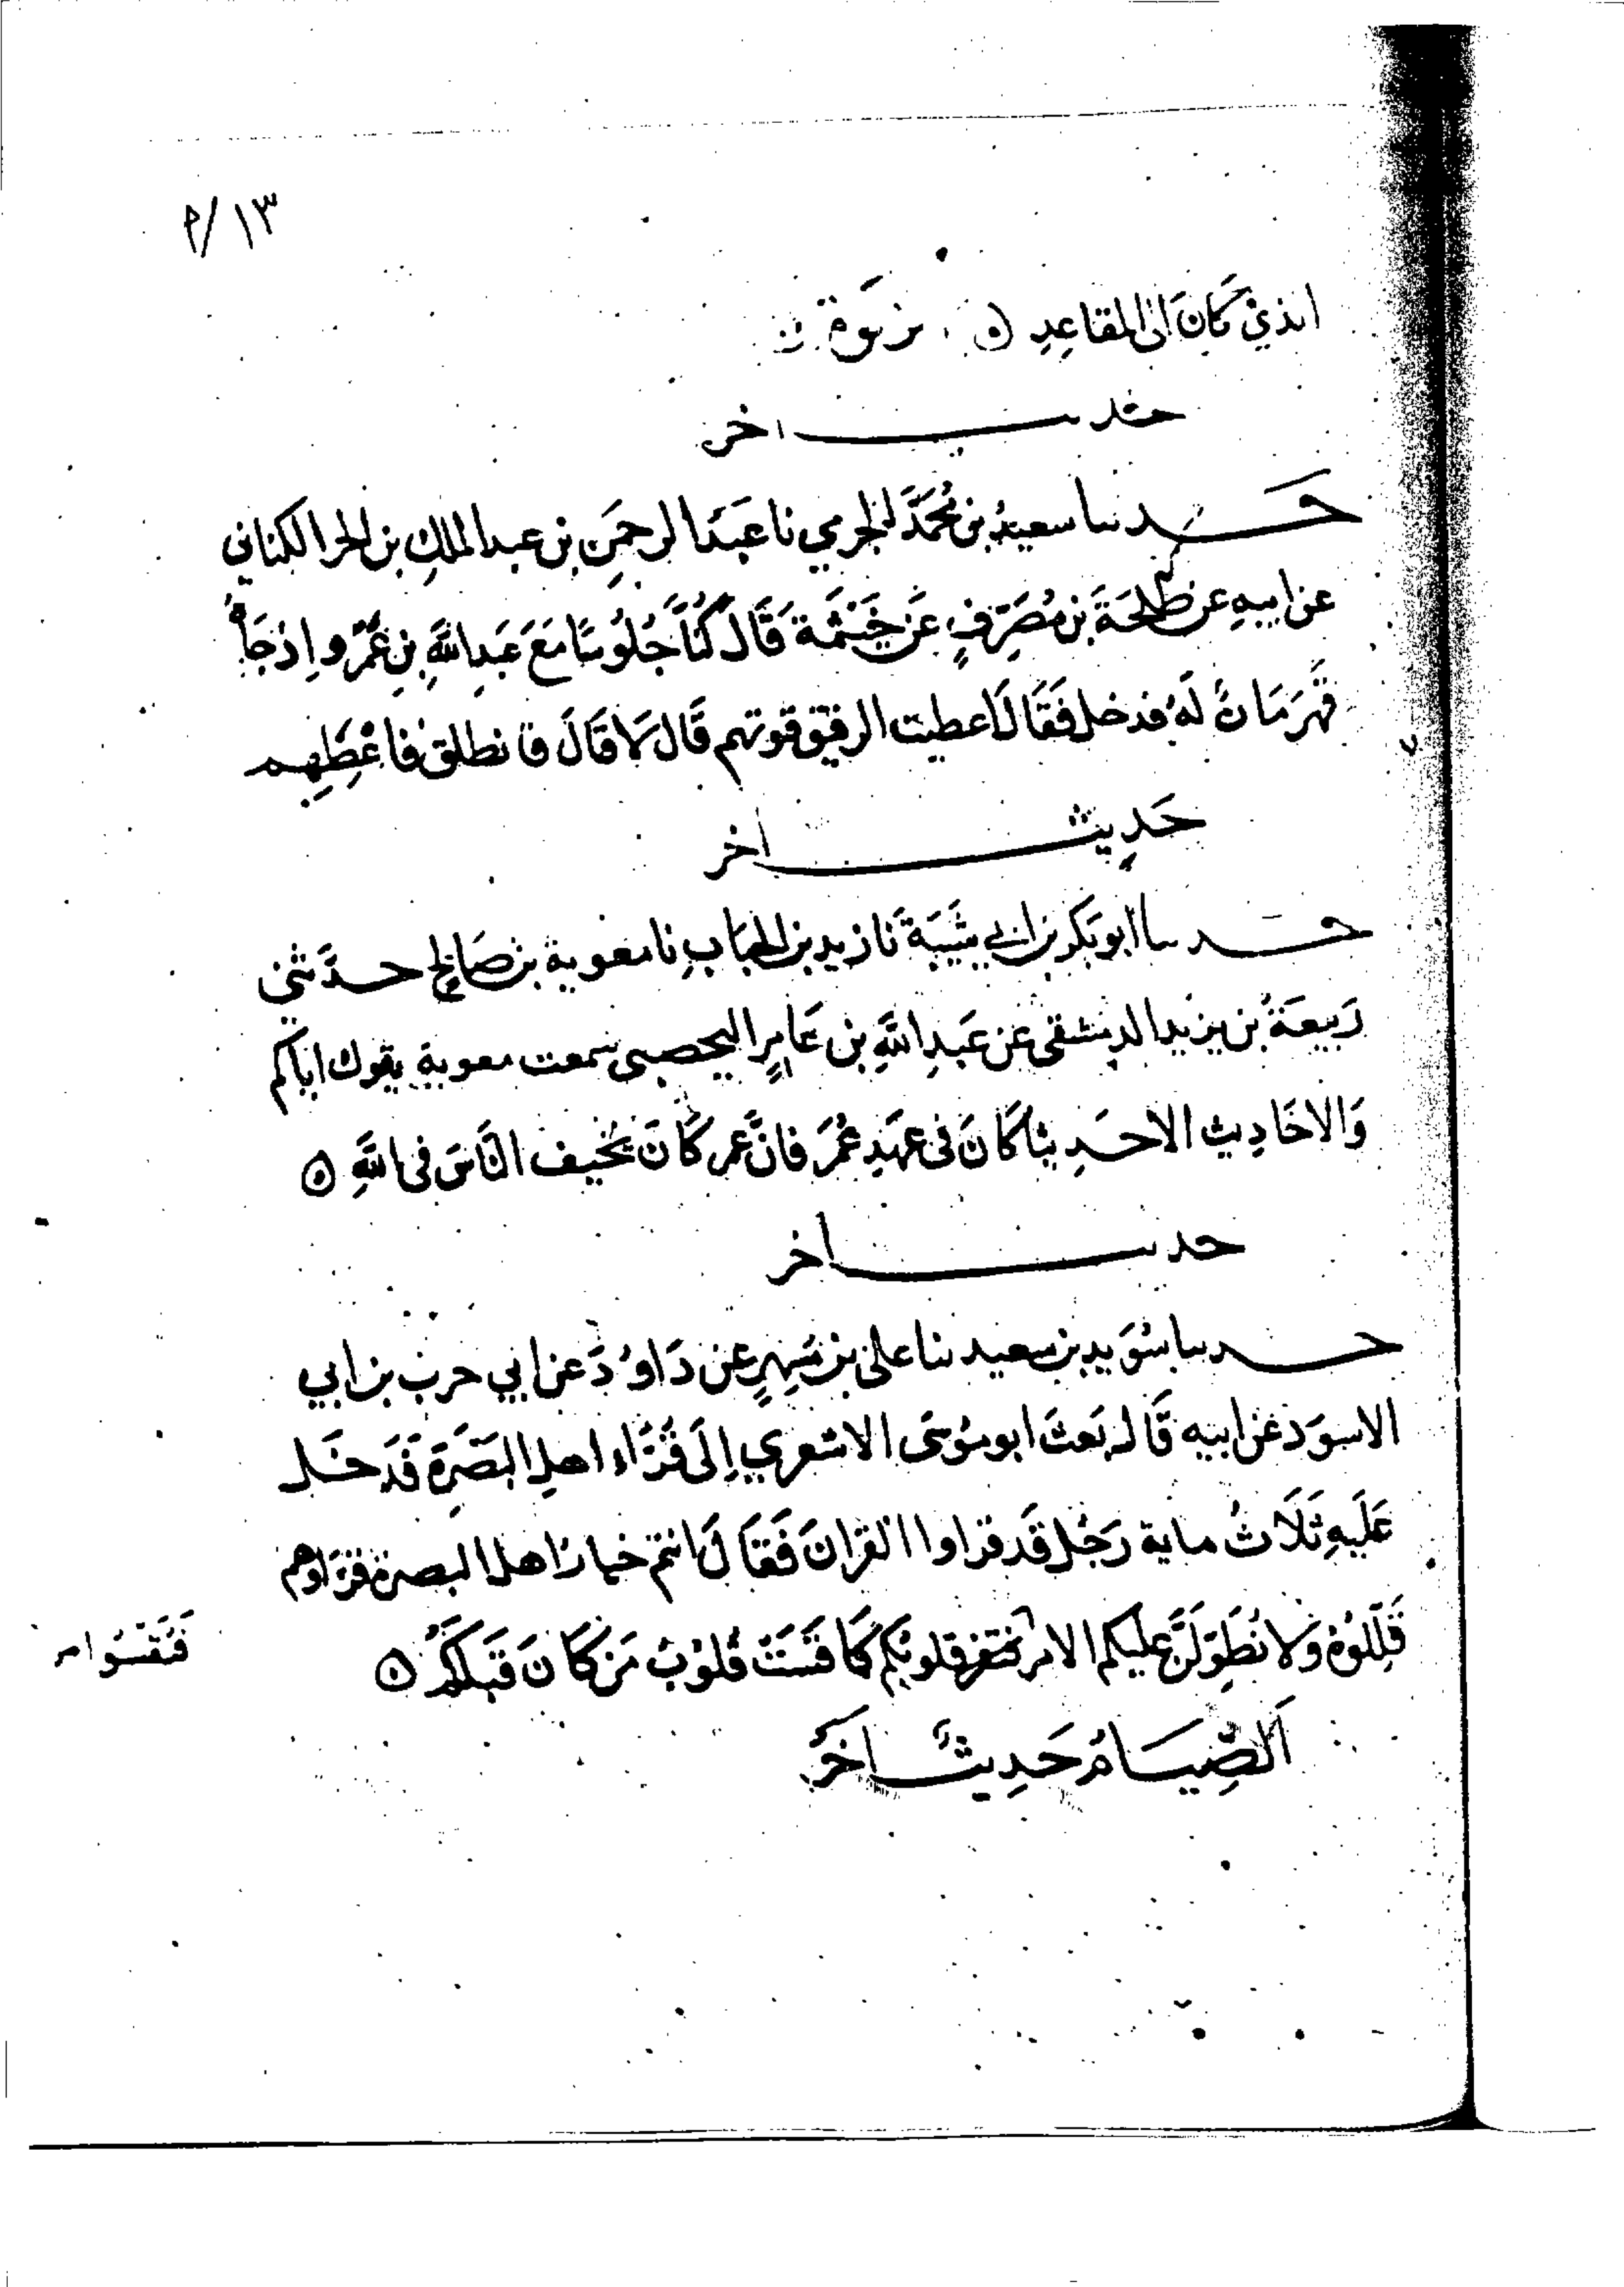 ١٣/م
الذي كَانَ الى المقاعِدِ ۞
حديث اخر
حـــدثنا سعيدُ بن مُحَمَّد الجرمي نا عَبدُ الرحمَنِ بن عبد الملكِ بن ابجر الكناني
عن ابيهِ عن طلحَةَ بن مُصَرِّفٍ عَن خَيثمَة قَالَ كُنَّا جُلُوسًا مَعَ عَبدِ اللَّهِ بنِ عَمْرو اِذ جَاءُ
قَهرَمَانٌ لَهُ فدخل فَقَالَ اَعطيت الرقيق قوتهم قَال لَا قَالَ فانطلقْ فاعْطِهِم
حَدِيث اخر
حـــدثنا ابو بَكر بن ابي شَيبَةَ نا زيد بن الحبَابِ نا معوية بن صَالحٍ حـدَّثني
رَبيعَةُ بن يزيد الدمشقي عن عَبدِ اللَّهِ بن عَامِرٍ اليحصبي سمعت معوية يقول اياكم
وَالاحَادِيث الا حَدِيثا كَانَ فى عهدِ عُمَرَ فانَّ عمر كَانَ يُخيف النَّاسَ فى اللَّهِ ۞
حديث اخر
حـــدثنا سُوَيد بن سعيد ثنا على بن مُسهِرٍ عن دَاوُدَ عن ابي حرب بن ابي
الاسوَد عن ابيه قَال بَعَثَ ابو مُوسَى الاشعري اِلَى قُرَّاءِ اهلِ البَصْرَةِ فَدَخَل
عَلَيهِ ثَلَاثُ ماية رَجُل قَد قراوا القرانَ فَقَالَ انتم خيار اهل البصرة وقراوهم
فَاتلُوُه وَلا يَطُولَنَّ عليكم الامَد فتقسو قلوبكم كَمَا قَسَتْ قُلُوبُ مَن كَانَ قَبلَكُم ۞
فَتَقسُوا
اَلصِّيَامُ حَدِيثٌ اخَرُ